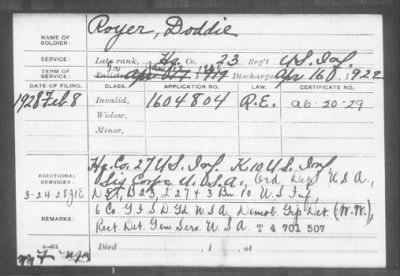 Royer, Doddie
NAME OF SOLDIER:
SERVICE: Late rank, Hq. Co. 23 Reg't U S Inf.
TERM OF SERVICE: Enlisted Apr 1919 Discharged Apr 16, 1922
DATE OF FILING. CLASS. APPLICATION NO. LAW. CERTIFICATE NO.
1928 Feb 8 Invalid, 1604804 P.E. a6-20-29
Widow,
Minor,
ADDITIONAL SERVICES: Hq. Co. 27 U S Inf. K 10 U.S. Inf,
Sig Corps U.S.A., Ord. Dept U S A,
3-24-28 Det, B 23, E 27 + 3 Bn 10 U.S. Inf,
6 Co. Gd U.S.A. Demob. Grp Det. (W.W.),
REMARKS: Rect Det. Gen Serv. U S A T 4 701 507
Died , 1 , at